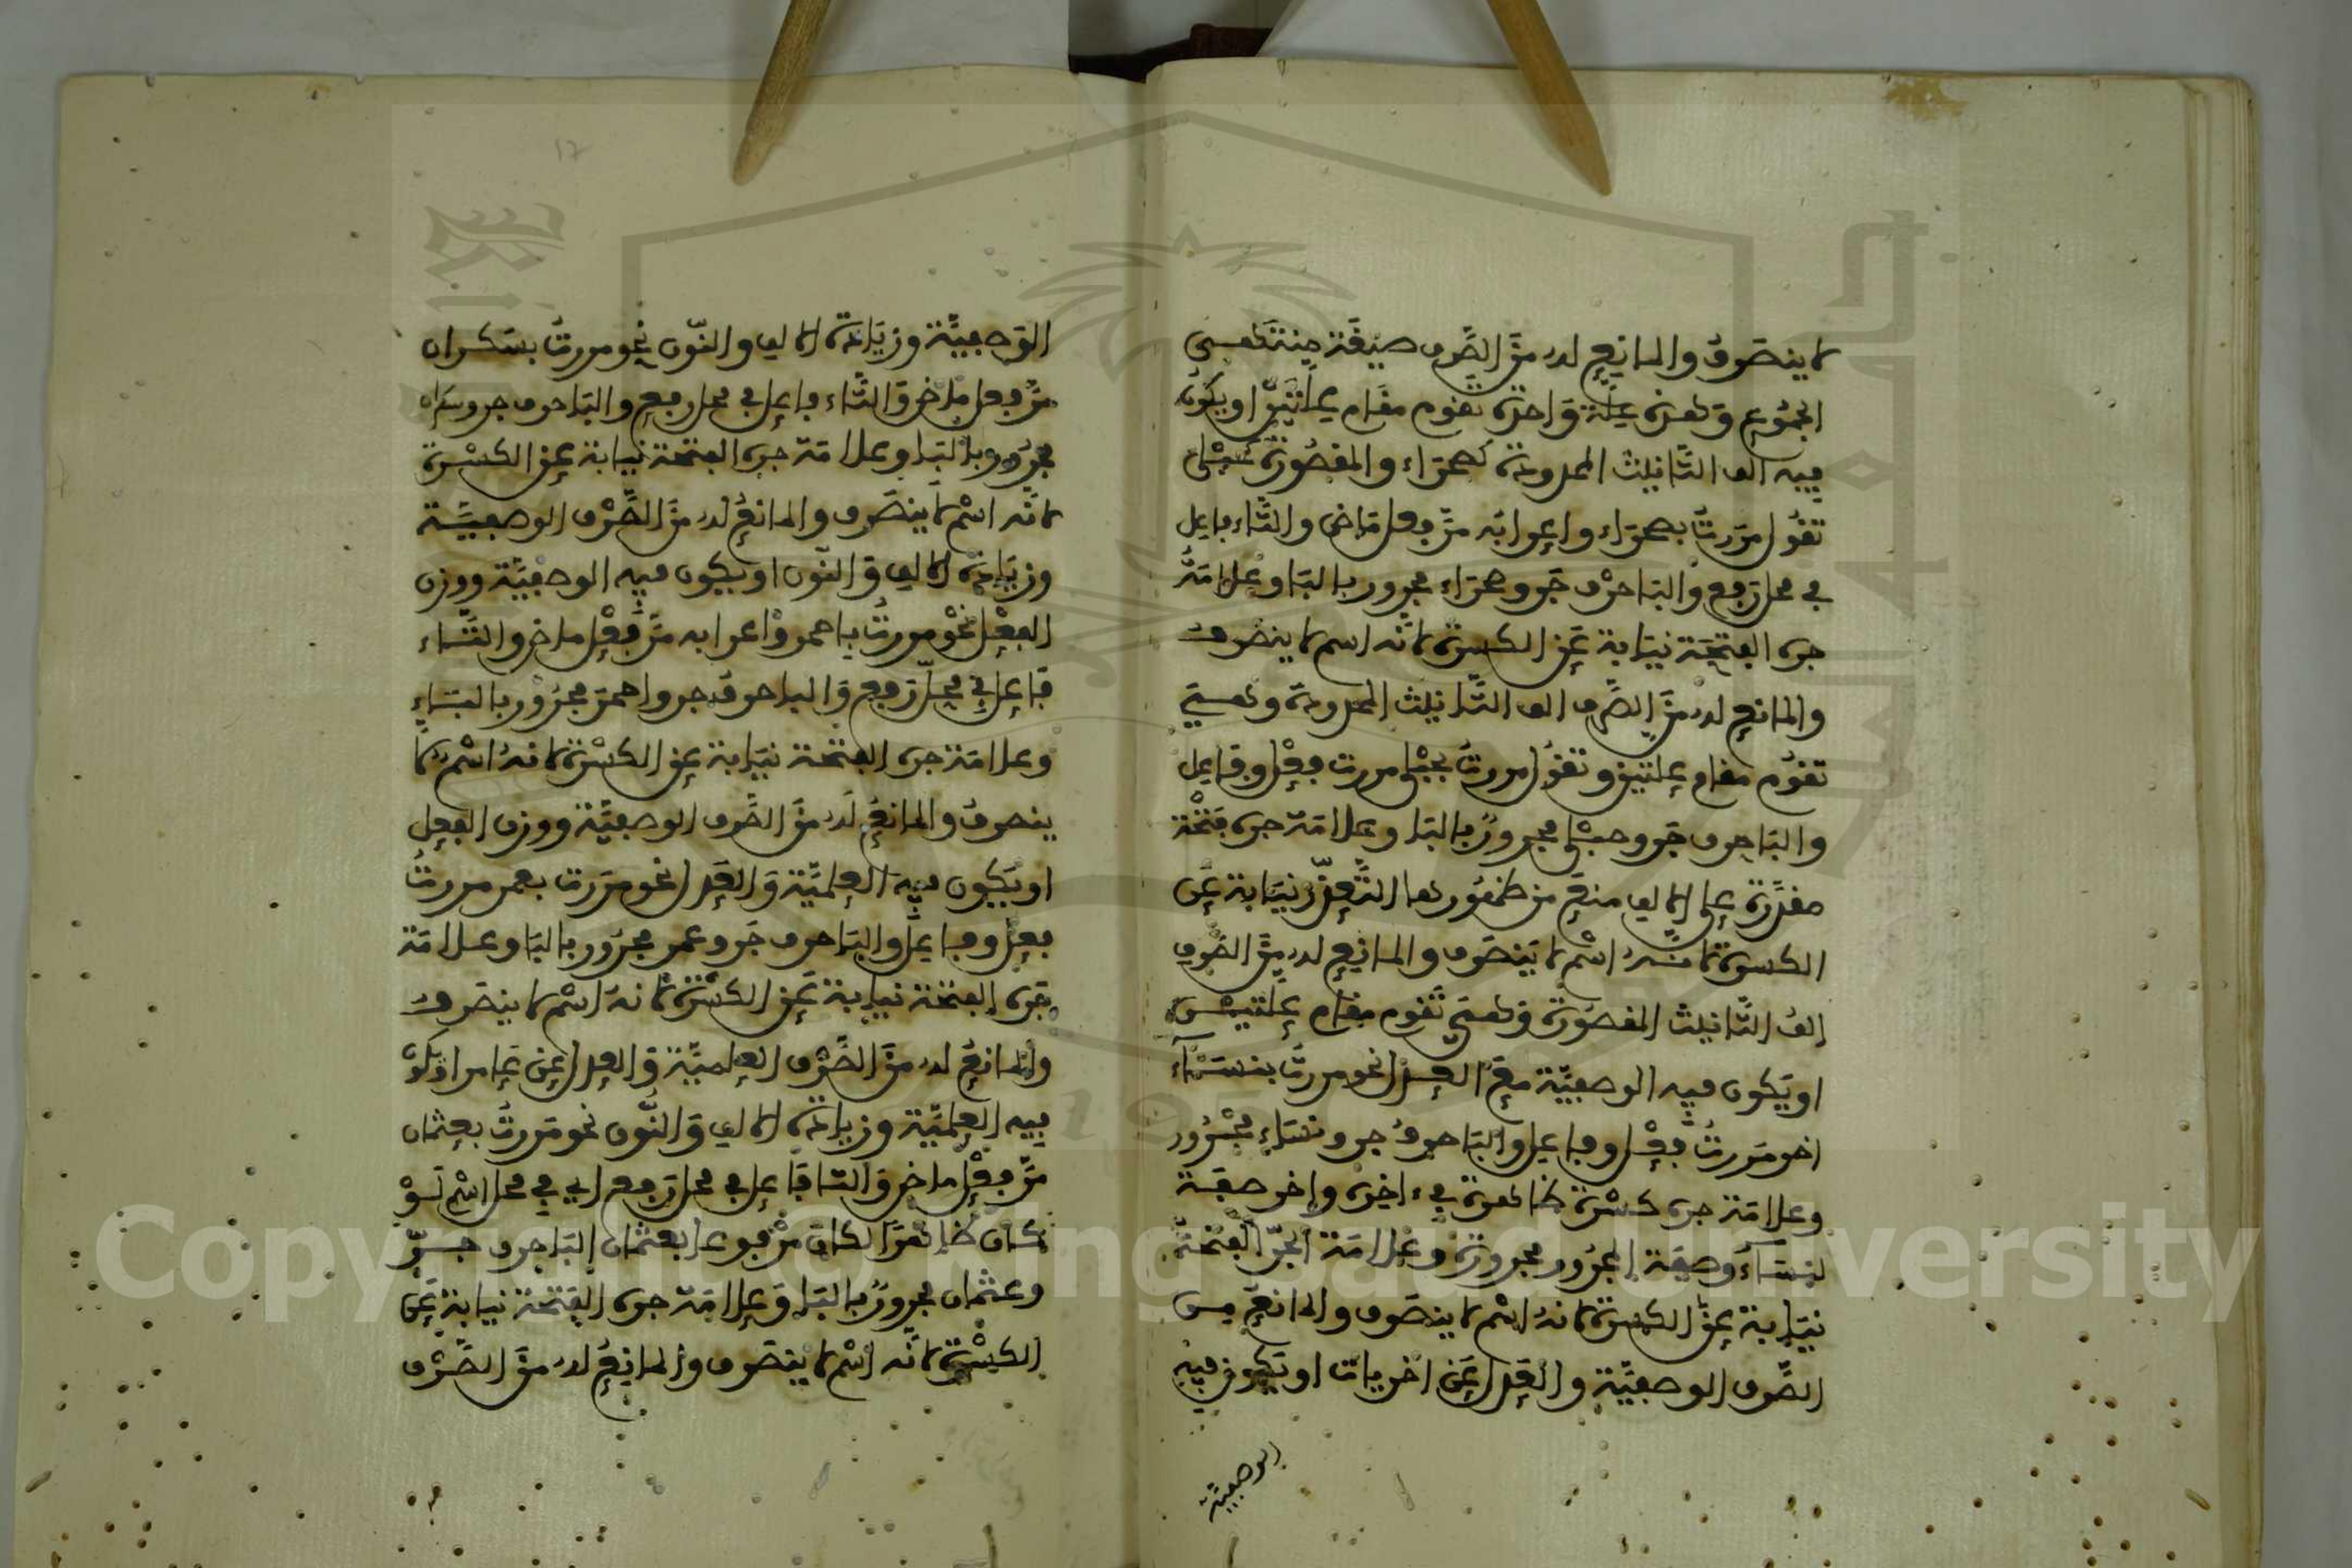 لا ينصرف والمانع له من الصرف صيغة منتهى
الجموع وهذه علة واحدة تقوم مقام علتين او يكون
فيه الف التانيث الممدودة كصحراء والمقصورة كحبلى
تقول مررت بصحراء واعرابه مرّ فعل ماضى والتّاء فاعل
في محل رفع والبا حرف جر وصحراء مجرور بالبا وعلامة
جره الفتحة نيابة عن الكسرة لانه اسم لا ينصرف
والمانع له من الصرف الف التانيث الممدودة وهي
تقوم مقام علتين وتقول مررت بحبلى مررت فعل وفاعل
والبا حرف جر وحبلى مجرور بالبا وعلامة جره فتحة
مقدرة على الالف منع من ظهورها التعذر نيابة عن
الكسرة لانه اسم لا ينصرف والمانع له من الصرف
الف التانيث المقصورة وهي تقوم مقام علتيـن
او يكون فيه الوصفية مع العدل نحو مررت بنساء
اخر مررت فعل وفاعل والبا حرف جر ونساء مجرور
وعلامة جره كسرة ظاهرة في ءاخره واخر صفة
لنساء وصفة المجرور مجرورة وعلامة الجر الفتحة
نيابة عن الكسرة لانه اسم لا ينصرف والمانع من
الصرف الوصفية والعدل عن اخريات او يكون فيه
الوصفية
الوصفية وزيادة الالف والنون نحو مررت بسكران
مرّ فعل ماض والتاء فاعل في محل رفع والبا حرف جر وسكران
مجرور بالبا وعلامة جره الفتحة نيابة عن الكسرة
لانه اسم لا ينصرف والمانع له من الصرف الوصفيـة
وزيادة الالف والنون او يكون فيه الوصفية ووزن
الفعل نحو مررت باحمر واعرابه مرّ فعل ماض والتـاء
فاعل في محل رفع والبا حرف جر واحمر مجرور بالباء
وعلامة جره الفتحة نيابة عن الكسرة لانه اسم لا
ينصرف والمانع له من الصرف الوصفية ووزن الفعل
او يكون فيه العلمية والعدل نحو مررت بعمر مررت
فعل وفاعل والبا حرف جر وعمر مجرور بالبا وعلامة
جره الفتحة نيابة عن الكسرة لانه اسم لا ينصرف
والمانع له من الصرف العلمية والعدل عن عامر او يكون
فيه العلمية وزيادة الالف والنون نحو مررت بعثمان
مرّ فعل ماض والتا فاعل في محل رفع اي في محل اسم لو
كان ظاهرًا لكان مرفوعا بعثمان البا حرف جـرّ
وعثمان مجرور بالبا وعلامة جره الفتحة نيابة عن
الكسرة لانه اسم لا ينصرف والمانع له من الصرف
Copyright © King Saud University
1957